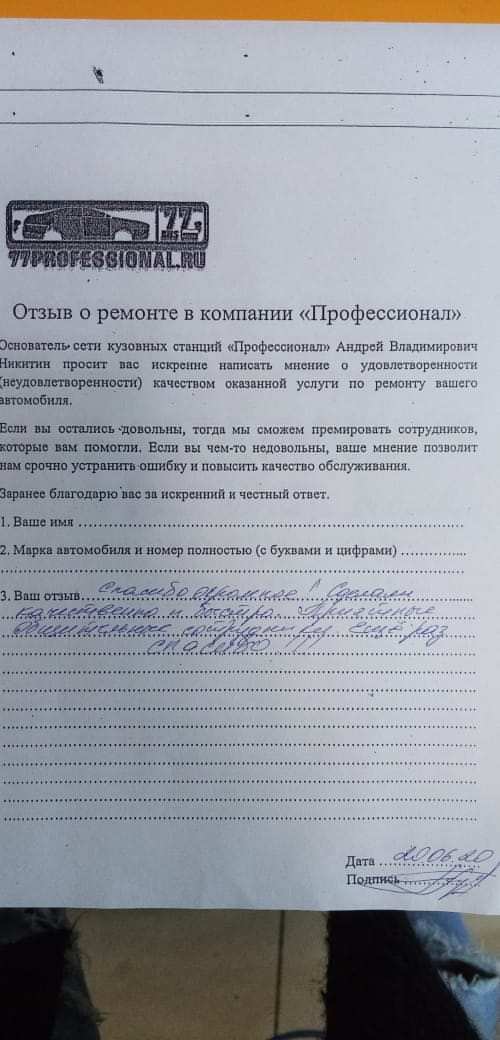 77
RUS
77PROFESSIONAL.RU
Отзыв о ремонте в компании «Профессионал»
Основатель сети кузовных станций «Профессионал» Андрей Владимирович
Никитин просит вас искренне написать мнение о удовлетворенности
(неудовлетворенности) качеством оказанной услуги по ремонту вашего
автомобиля.
Если вы остались довольны, тогда мы сможем премировать сотрудников,
которые вам помогли. Если вы чем-то недовольны, ваше мнение позволит
нам срочно устранить ошибку и повысить качество обслуживания.
Заранее благодарю вас за искренний и честный ответ.
1. Ваше имя
2. Марка автомобиля и номер полностью (с буквами и цифрами)
3. Ваш отзыв спасибо огромное! Сделали
качественно и быстро. Приятные
общительные сотрудники. Ещё раз
спасибо!!!
Дата 20.06.20
Подпись